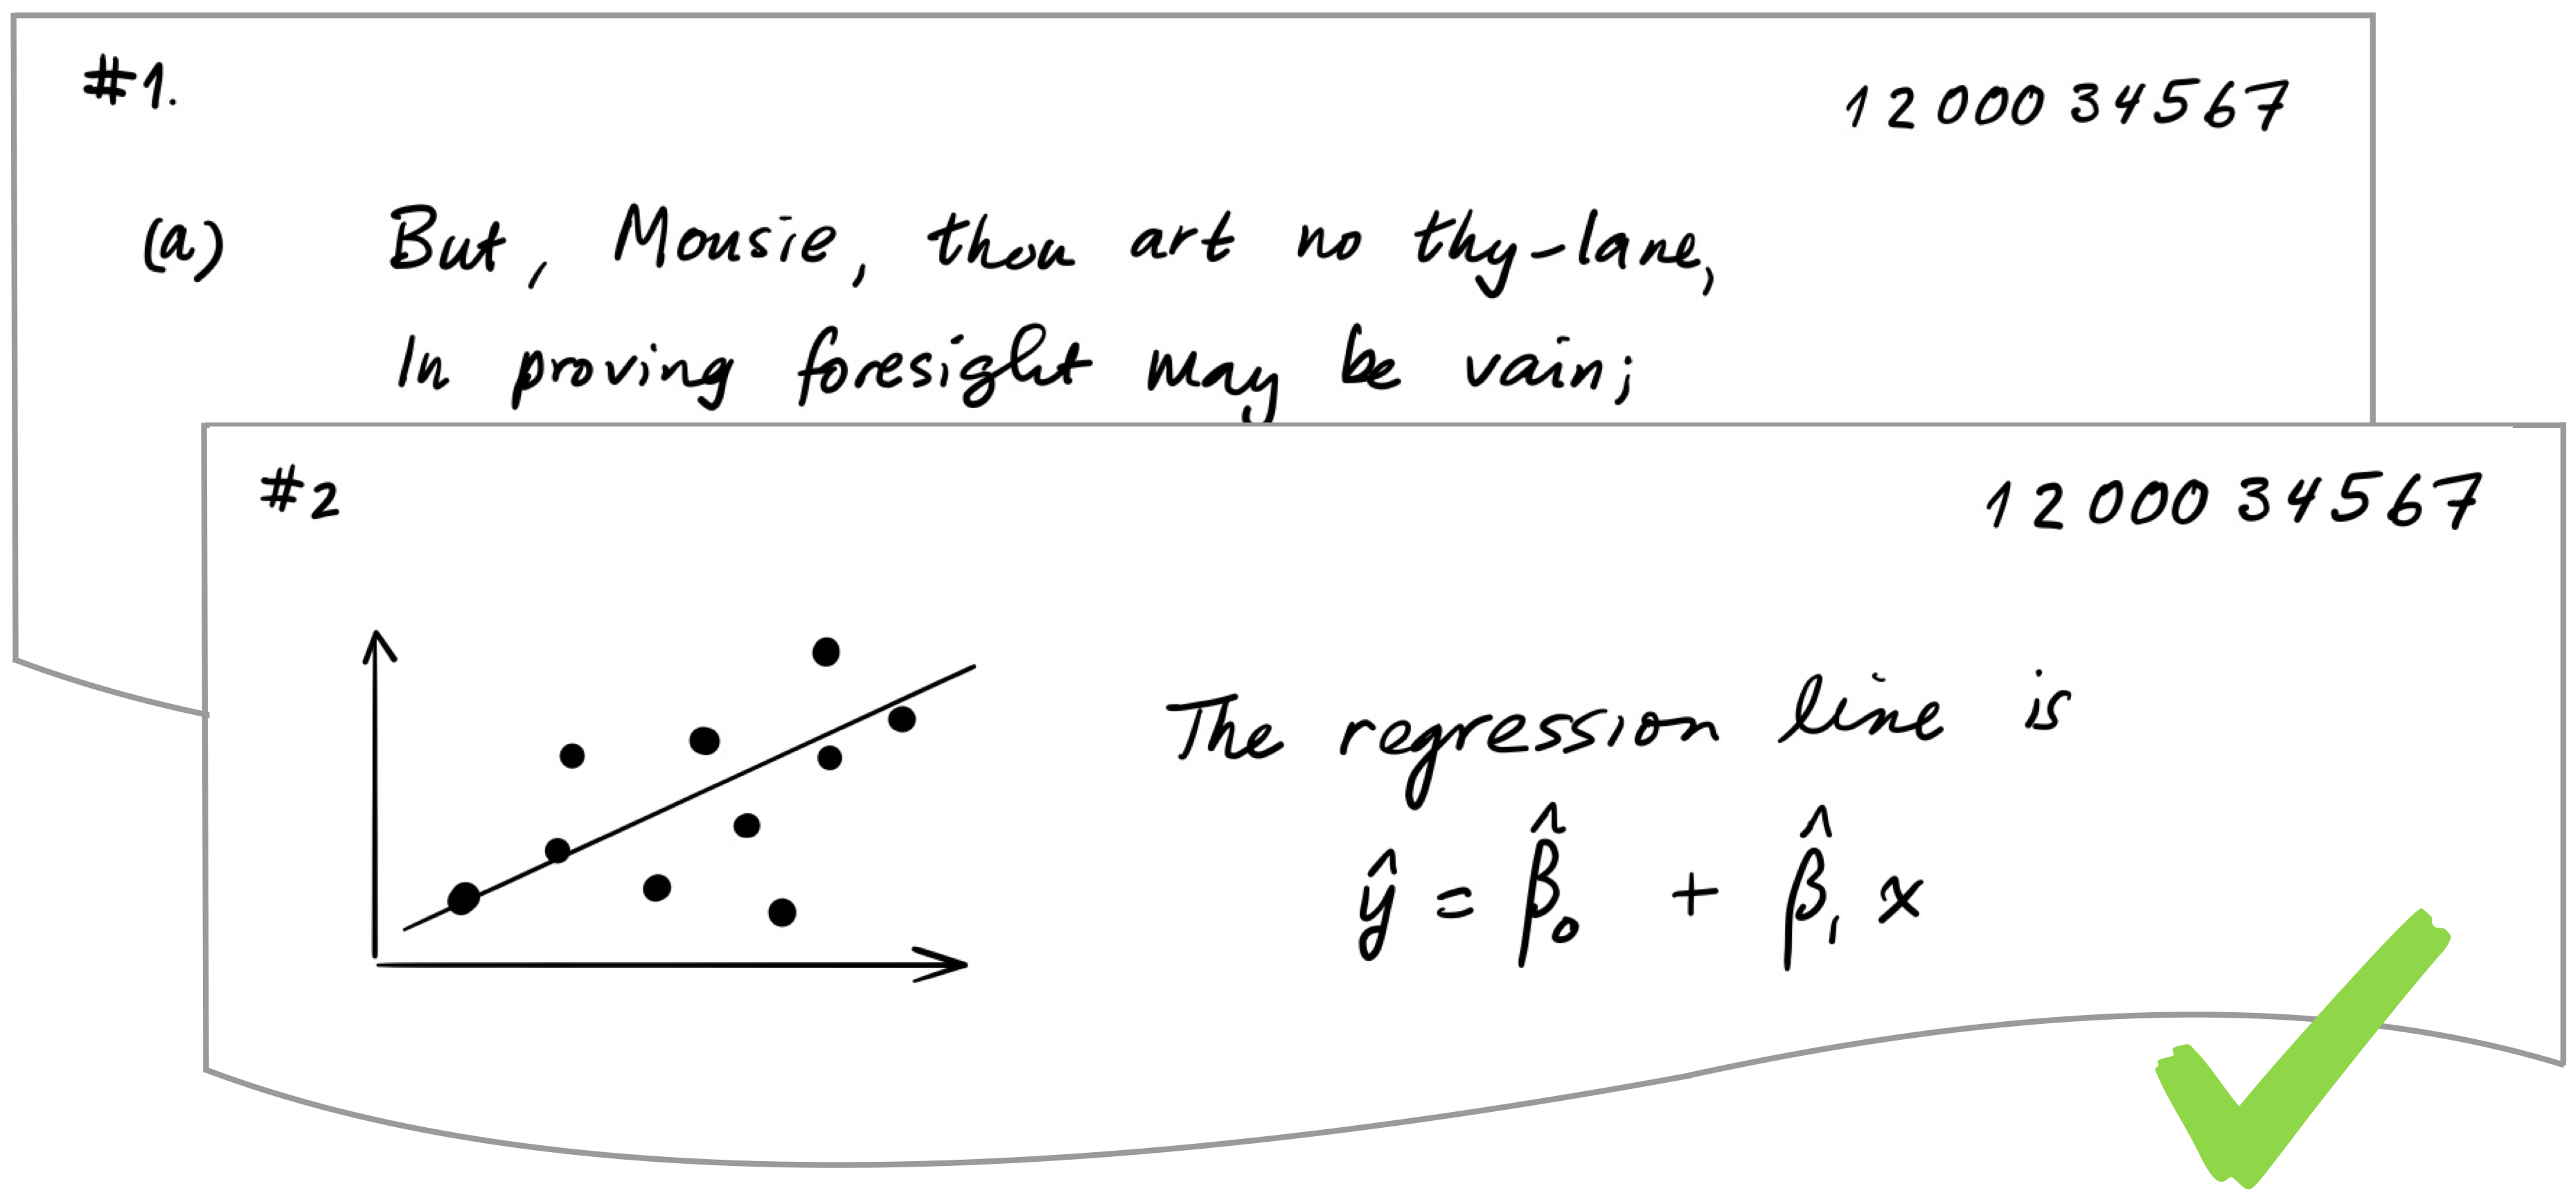 #1.
12 000 34567
(a) But, Mousie, thou art no thy-lane,
In proving foresight may be vain;
#2
12 000 34567
The regression line is
ŷ = β̂₀ + β̂₁ x